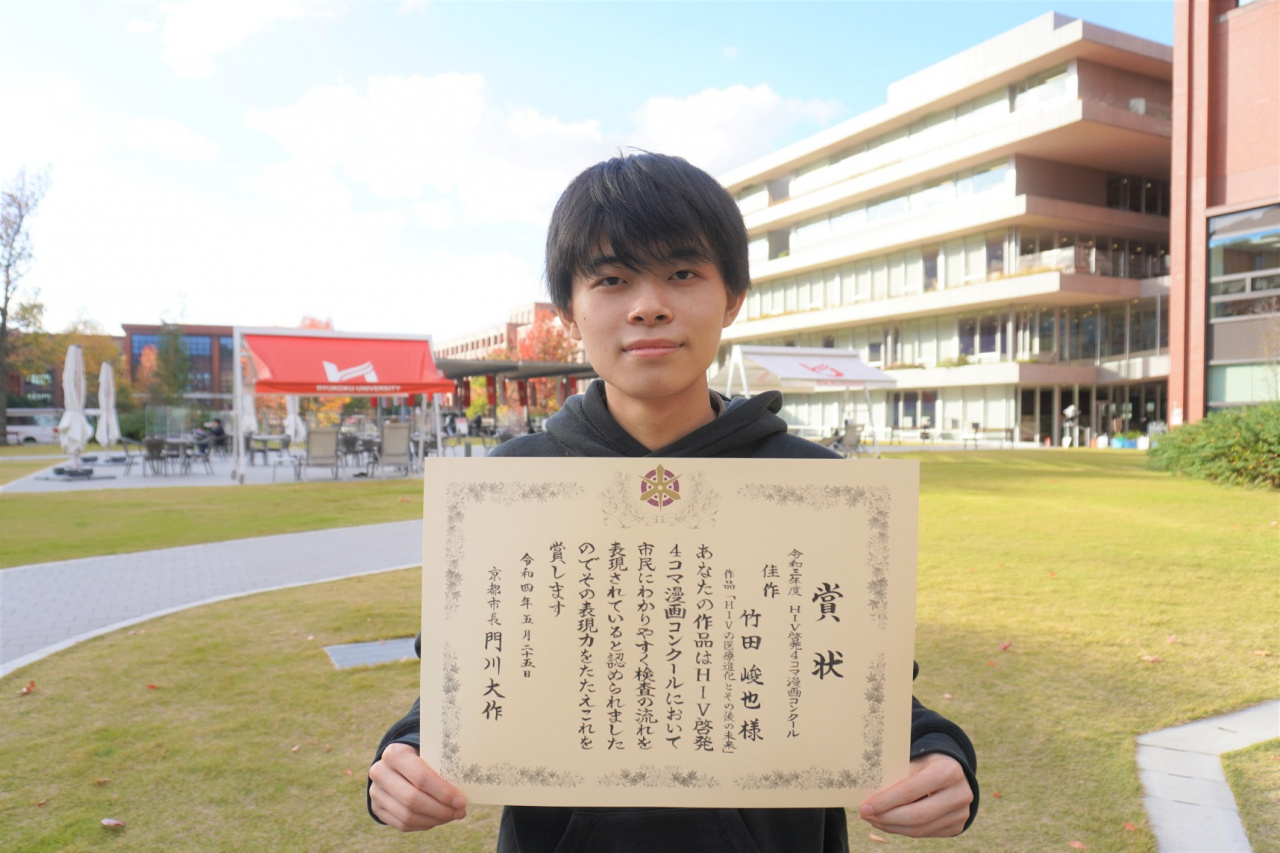 RYUKOKU UNIVERSITY
賞状
令和三年度 HIV啓発4コマ漫画コンクール
佳作
竹田 峻也様
作品「HIVの医療進化とその後の未来」
あなたの作品はHIV啓発
4コマ漫画コンクールにおいて
市民にわかりやすく検査の流れを
表現されていると認められました
のでその表現力をたたえこれを
賞します
令和四年五月二十五日
京都市長 門川大作